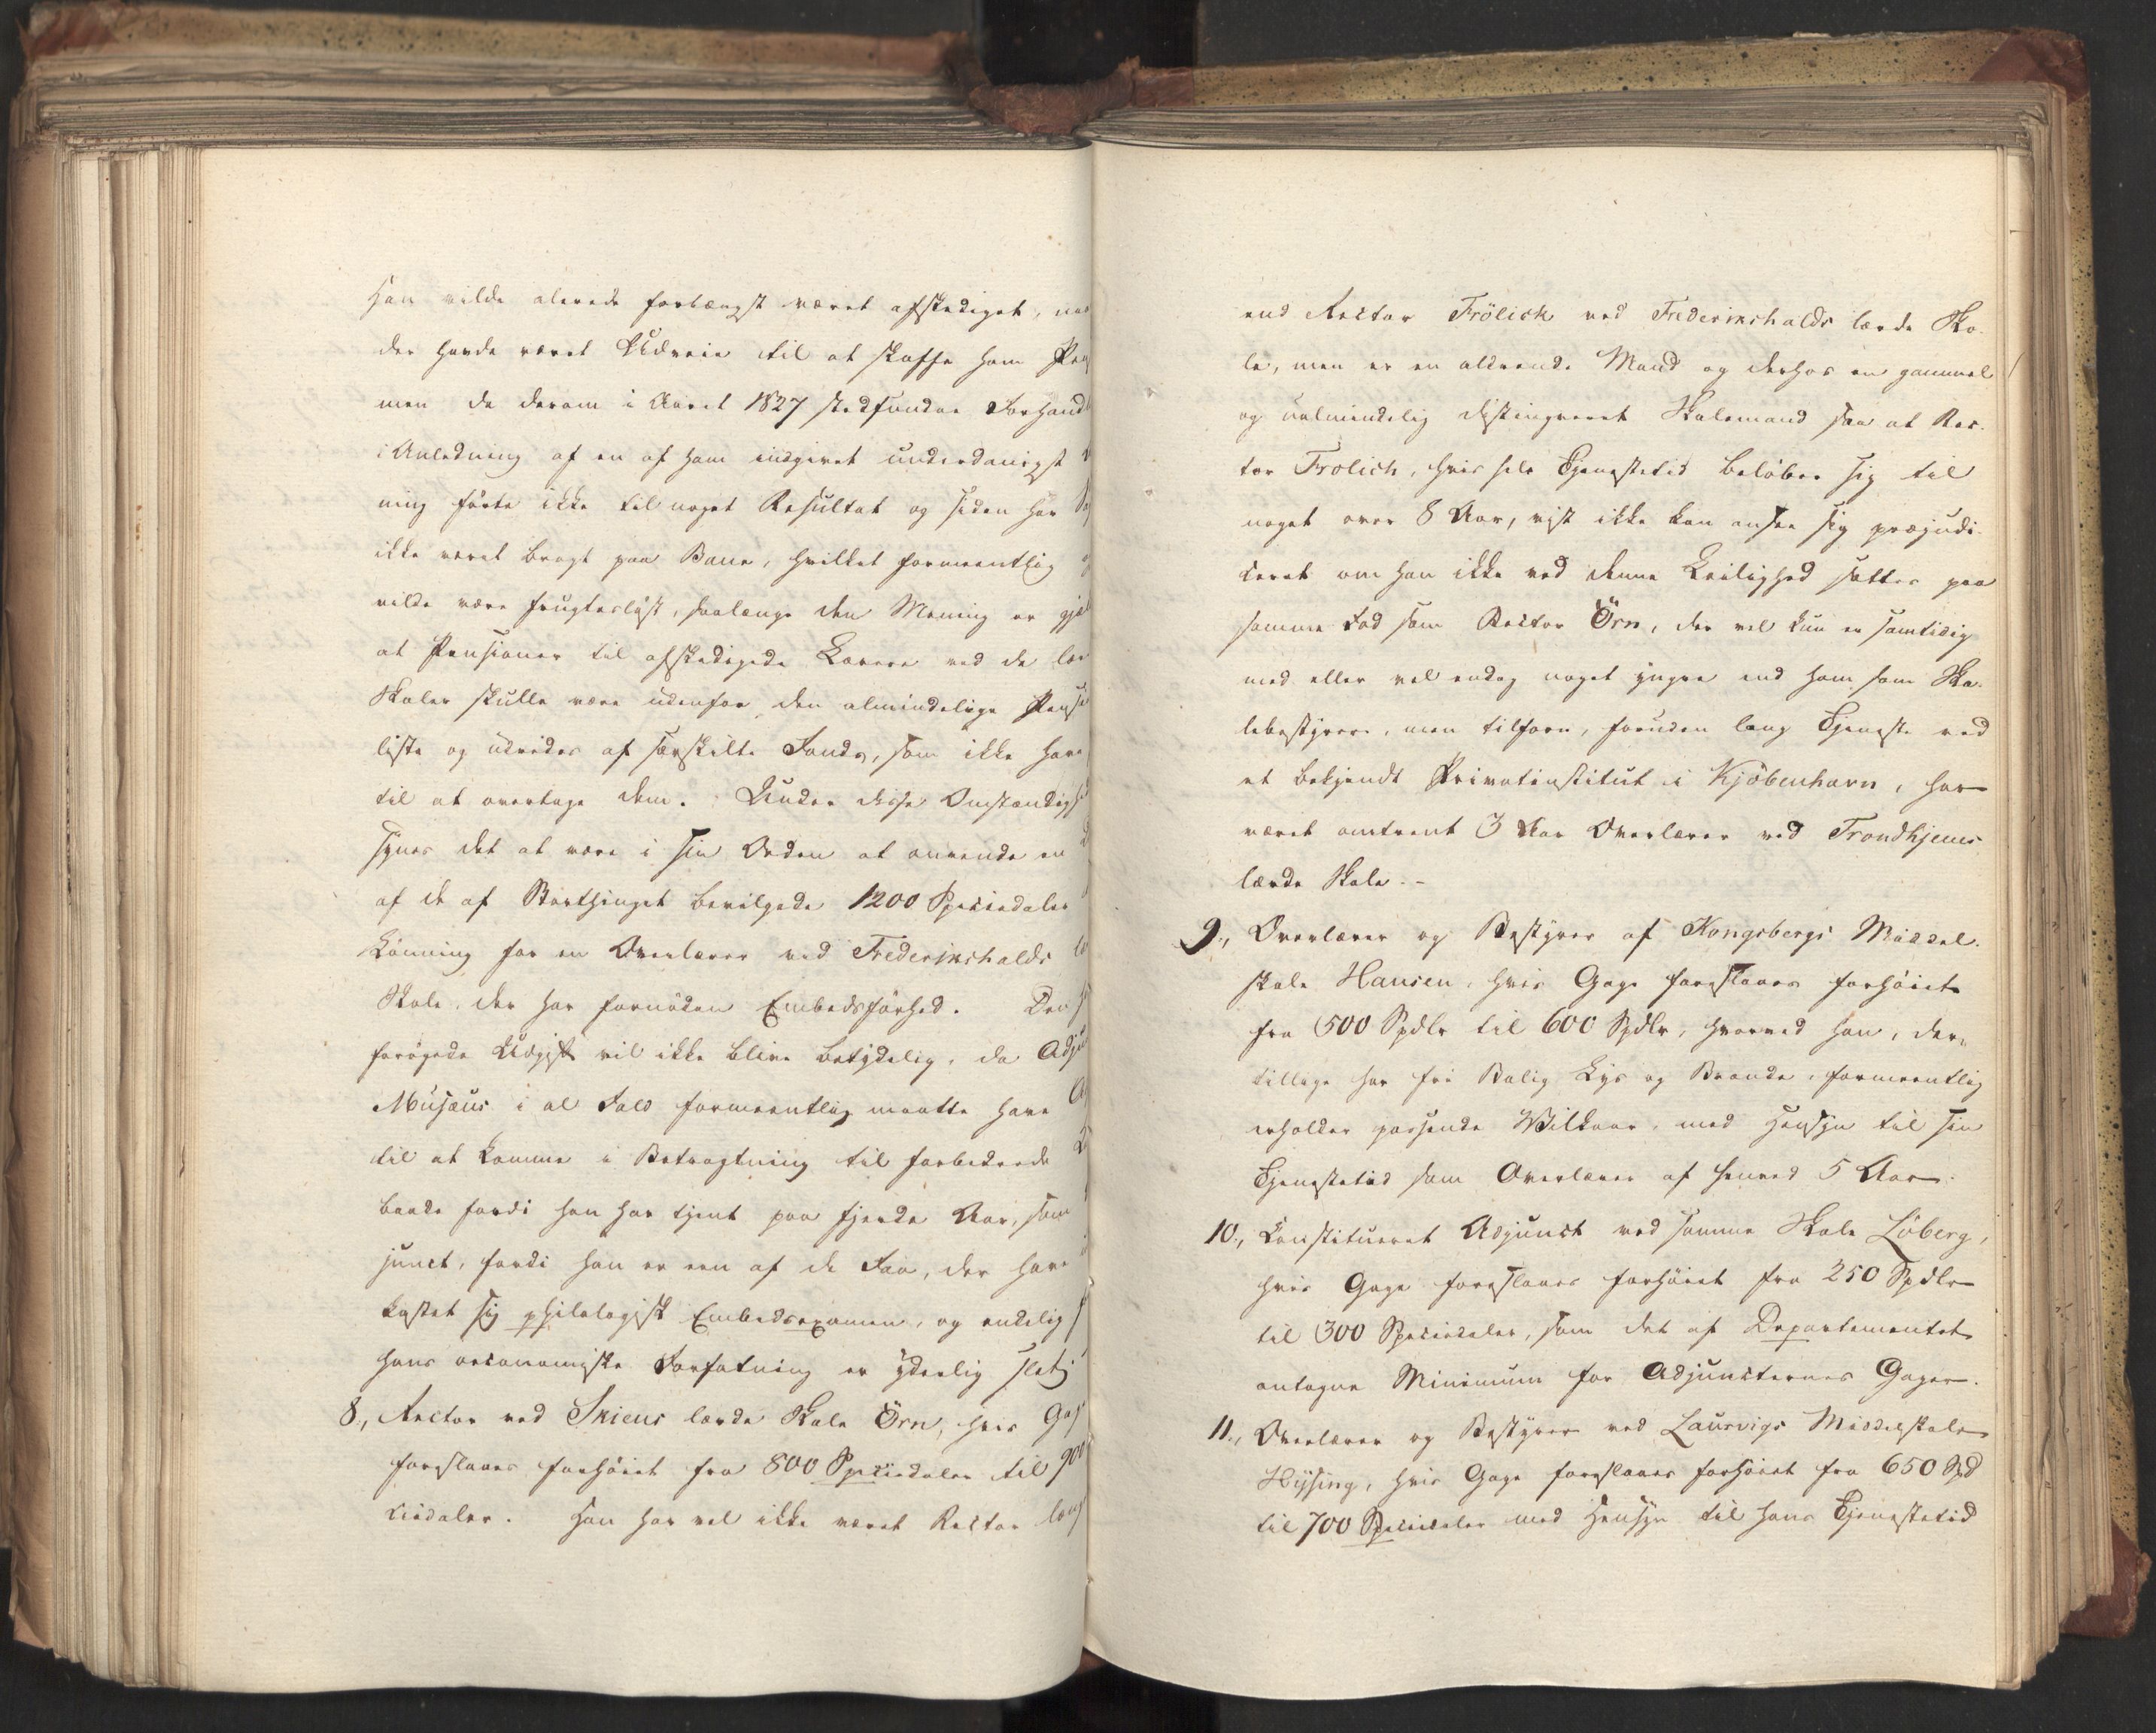 Han vilde allerede forlængst været afskediget, naar
der havde været Udveie til at skaffe ham Pens
men de derom i Aaret 1827 stedfundne Forhandl
i Anledning af en af ham indgivet underdanigst
ning førte ikke til noget Resultat og siden har
ikke været bragt paa Bane, hvilket formeentlig
vilde være frugtesløst, saalænge den Mening er gjæl
at Pensioner til afskedigede Lærere ved de lær
Skoler skulle være udenfor den almindelige Pensi
liste og udredes af særskilte Fonds, som ikke have
til at overtage dem. Under disse Omstændighe
synes det at være i sin Orden at anvende en
af de af Storthinget bevilgede 1200 Speciedaler
Lønning for en Overlærer ved Frederikshalds
Skole der har fornøden Embedsførhed. Den
forøgede Udgift vil ikke blive betydelig, da Adju
Musæus i al Fald formeentlig maatte have
til at komme i Betragtning til forbedrede
baade fordi han har tjent paa fjerde Aar, som
junct, fordi han er een af de Faa, der have
kastet sig philologisk Embedsexamen, og endelig
hans oeconomiske Forfatning er yderlig slet;
8., Rector ved Skiens lærde Skole Örn, hvis Gag
foreslaaes forhøiet fra 800 Speciedaler til 900
ciedaler. Han har vel ikke været Rector læng
end Rector Frölich ved Frederikshalds lærde Sko-
le, men er en aldrende Mand og derhos en gammel
og ualmindelig distingveret Skolemand saa at Rec-
tor Frolich, hvis hele Tjenestetid beløber sig til
noget over 8 Aar, vist ikke kan ansee sig præjudi-
ceret om han ikke ved denne Leilighed sættes paa
samme Fod som Rector Örn, der vel kun er samtidig
med eller vel endog noget yngre end ham som Sko-
lebestyrer, men tilforn, foruden lang Tjeneste ved
et bekjendt Privatinstitut i Kjöbenhavn, har
været omtrent 3 Aar Overlærer ved Trondhjems
lærde Skole. -
9., Overlærer og Bestyrer af Kongsbergs Middel-
skole Hansen, hvis Gage foreslaaes forhøiet
fra 500 Spdlr til 600 Spdlr, hvorved han, der,,
tillige har fri Bolig Lys og Brænde, formeentlig
erholder passende Vilkaar, med Hensyn til sin
Tjenestetid som Overlærer af henved 5 Aar.
10., Constitueret Adjunct ved samme Skole Löberg,
hvis Gage foreslaaes forhøiet fra 250 Spdlr
til 300 Speciedaler, som det af Departementet
antagne Minimum for Adjuncternes Gager.
11., Overlærer og Bestyrer ved Laurvigs Middelskole
Hysing, hvis Gage foreslaaes forhøiet fra 650 Spd
til 700 Speciedaler med Hensyn til hans Tjenestetid